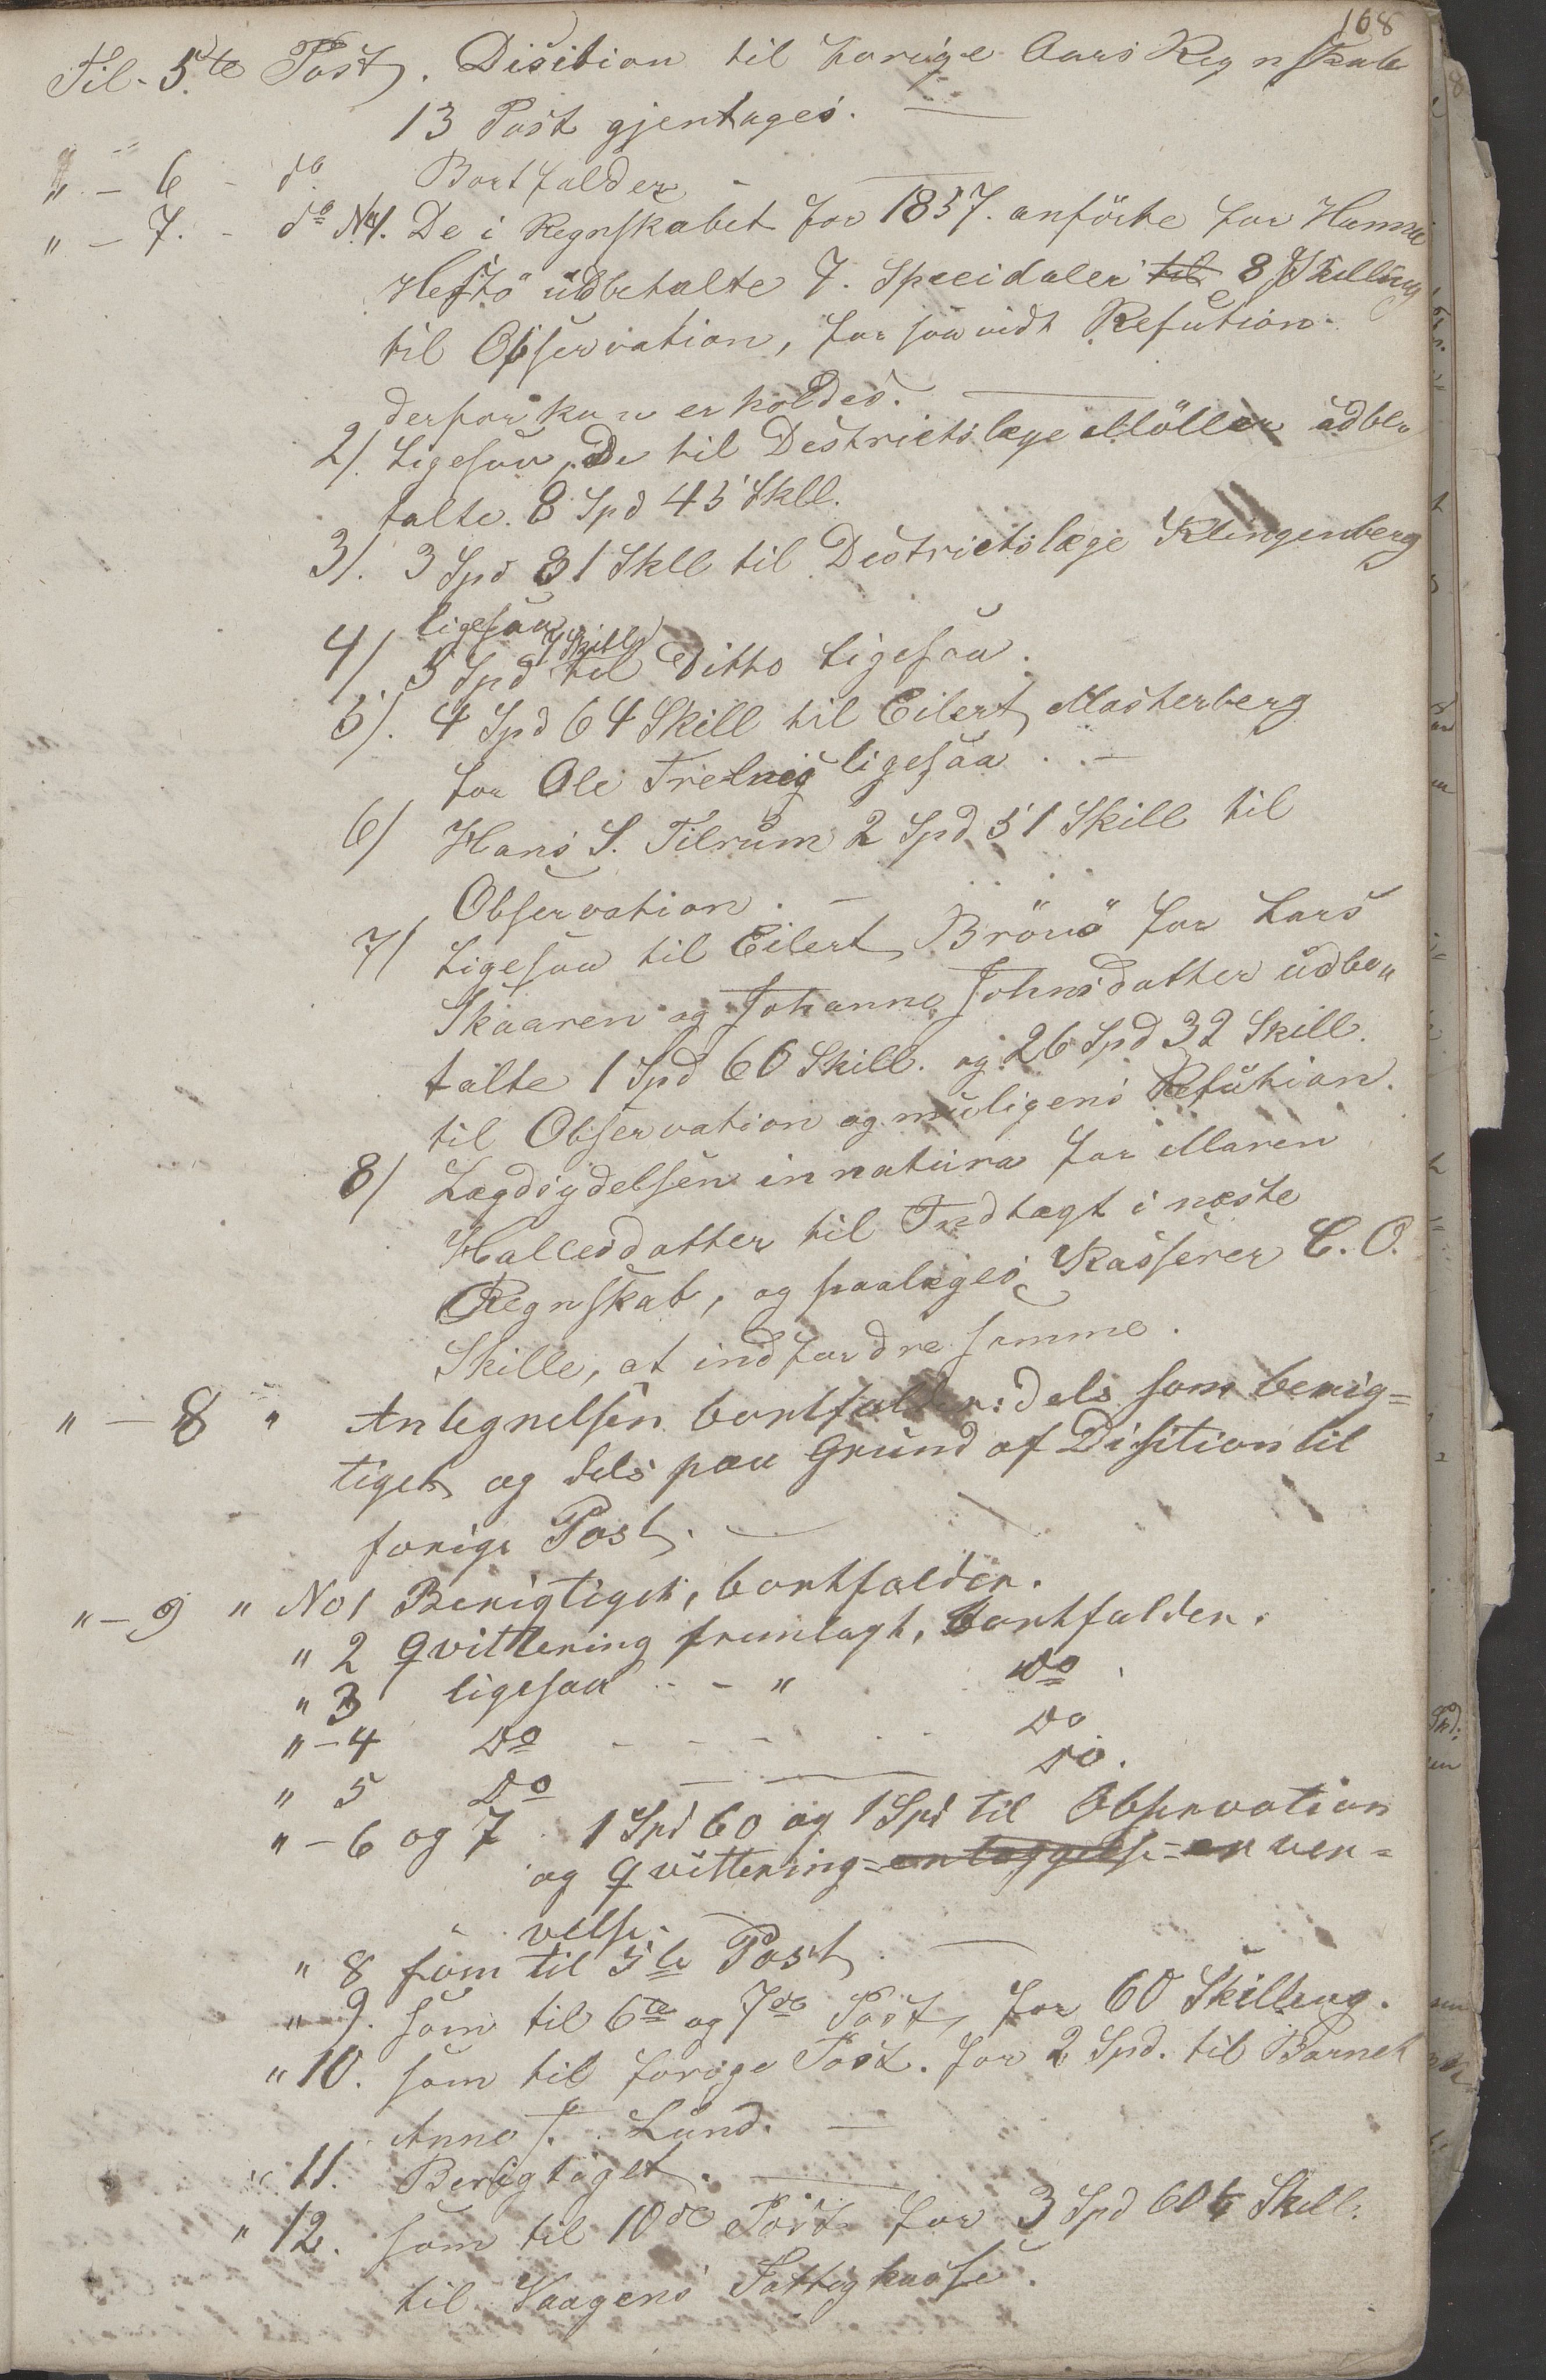 168
Til 5te Post. Disition til forrige Aars Regnskab
13 Post gjentages. —
" — 6 - do Bortfalder —
" — 7. - do No 1. De i Regnskabet for 1857. anförte for Hanna
Hestö udbetalte 7. Speeidaler til 8 Skilling
til Observation, forsaavidt Refution
derfor kan erholdes. —
2/. Ligesaa, De til Destrictslæge Möller udbe„
talte. 8 Spd 43 Skll.
3/. 3 Spd 81 Skll til Destrictslæge Klingenberg
ligesaa
4/ 5 Spd 4 Skill til Ditto Ligesaa.
5/. 4 Spd 64 Skill til Eilert Masterberg
for Ole Trelnes ligesaa . —
6/ Hans S. Tilrum 2 Spd. 51 Skill til
Observation. —
7/ Ligesaa til Eilert Brönö for Lars
Skaaren og Johanna Johnsdatter udbe„
talte 1 Spd 60 Skill. og 26 Spd 32 Skill.
til Observation og muligens Refution.
8/ Lægdsydelsen in natura for Maren
Hallesdatter til Indtægt i næste
Regnskab, og paalæges Kasserer C. O.
Skille, at indfordre samme.
" — 8 " Antegnelsen bortfalder: dels som berig=
tiget og dels paa Grund af Disition til
forige Post. —
" — 9 " No 1 Berigtiget, bortfalder.
" 2 Qvittering fremlagt, bortfalder.
" 3 ligesaa - - " Do
" — 4 Do - - - Do
" 5 Do — — Do.
" — 6 og 7 . 1 Spd 60 og 1 Spd til Observation
og Qvittering= enlæggelse= er ver=
velse. —
" 8 som til 5te Post. —
" 9. som til 6te og 7de Post, for 60 Skilling.
" 10. som til forige Post. for 2 Spd. til Barnet
Anne J. Lund. —
" 11. Berigtiget. —
" 12. som til 10de Post for 3 Spd 60½ Skill.
til Vaagens Fattigkasse.